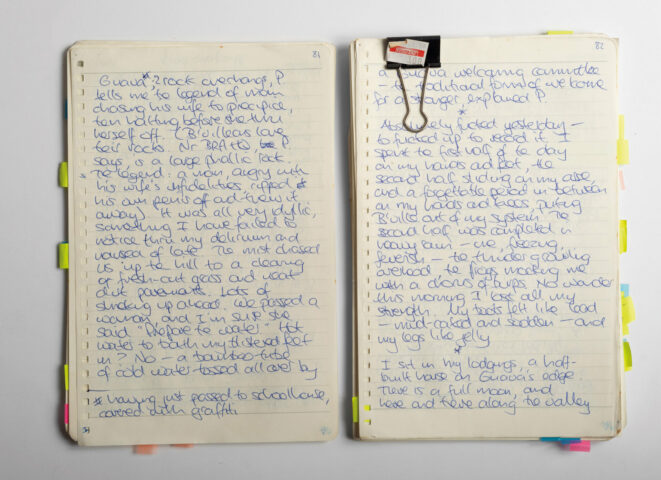 81
Guava*, 2 rock overhangs, P
tells me to legend of man
chasing his wife to precipice,
ten halting before she threw
herself off. (B'villeans love
their rocks. Nr BRA to P
says, is a large phallic rock.
The legend: a man, angry with
his wife's infidelities, ripped
his own penis off and threw it
away). It was all very idyllic,
something I have failed to
notice thru my delirium and
nausea of late. The mist chased
us up the hill to a clearing
of fresh-cut grass and neat
dirt pavements. Lots of
up ahead. We passed a
woman, and I'm sure she
said "Prepare the water". Hot
water to bath my blistered feet
in? No – a bamboo-tube
of cold water tossed all over by
* having just passed to schoolhouse,
covered with graffiti
82
a Guava welcoming committee
– to traditional form of welcome
for a stranger, explained P.
*
Absolutely fucked yesterday –
to fucked up to record it. I
spent to first half of to day
on my hands and feet, the
second half sliding on my arse,
and a forgettable period in between
on my hands and knees, puking
B'ville out of my system. The
second half was completed in
heavy rain – me, freezing,
feverish – to thunder growling
overhead, to frogs mocking me
with a chorus of burps. No wonder
this morning I lost all my
strength. My boots felt like lead
– mud-caked and sodden – and
my legs like jelly.
*
I sit in my lodgings, a half-
built house on Guava's edge.
There is a full moon, and
here and there along the valley